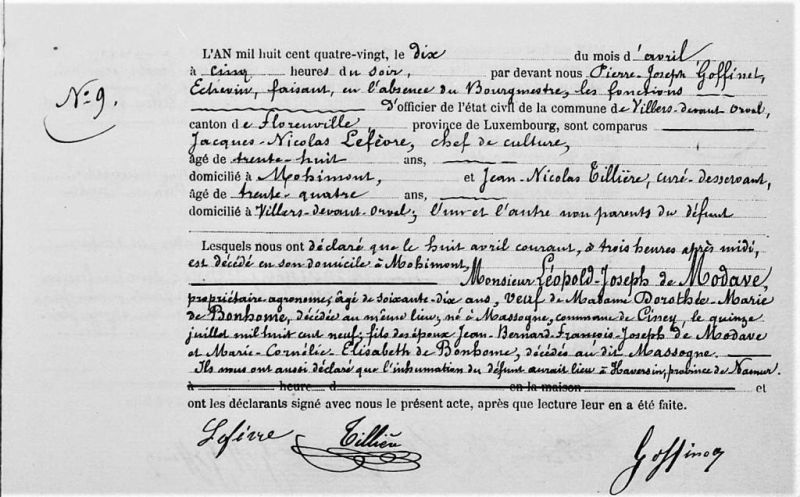 N.º 9.
L'AN mil huit cent quatre-vingt, le dix du mois d'avril
à cinq heures du soir, par devant nous Pierre-Joseph Goffinet,
Echevin, faisant, en l'absence du Bourgmestre, les fonctions
D'officier de l'état civil de la commune de Villers-devant-Orval,
canton de Florenville province de Luxembourg, sont comparus
Jacques-Nicolas Lefèvre, chef de culture,
âgé de trente-huit ans,
domicilié à Mohimont, et Jean-Nicolas Tillière, curé-desservant,
âgé de trente-quatre ans,
domicilié à Villers-devant-Orval; l'un et l'autre non parents du défunt
Lesquels nous ont déclaré que le huit avril courant, à trois heures après midi,
est décédé en son domicile à Mohimont,
Monsieur Léopold-Joseph de Modave,
propriétaire agronome, âgé de soixante-dix ans, veuf de Madame Dorothée-Marie
de Bonhome, décédée au même lieu; né à Massogne, commune de Ciney, le quinze
juillet mil huit cent neuf; fils des époux Jean-Bernard-François-Joseph de Modave
et Marie-Cornélie-Elisabeth de Bonhome, décédés au dit Massogne.
Ils nous ont aussi déclaré que l'inhumation du défunt aurait lieu à Haversin, province de Namur.
à heure d en la maison et
ont les déclarants signé avec nous le présent acte, après que lecture leur en a été faite.
Lefèvre Tillière Goffinet